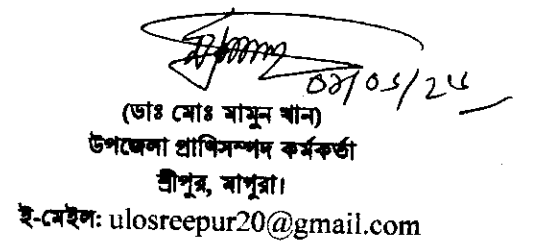 (ডাঃ মোঃ মামুন খান)
উপজেলা প্রাণিসম্পদ কর্মকর্তা
শ্রীপুর, মাগুরা।
ই-মেইল: ulosreepur20@gmail.com